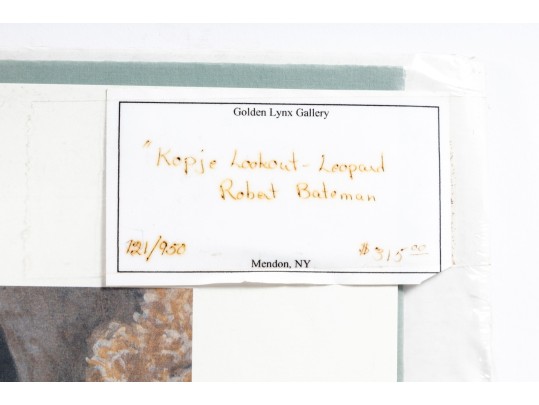 Golden Lynx Gallery
"Kopje Lookout - Leopard
Robert Bateman
121/950 $315.00
Mendon, NY